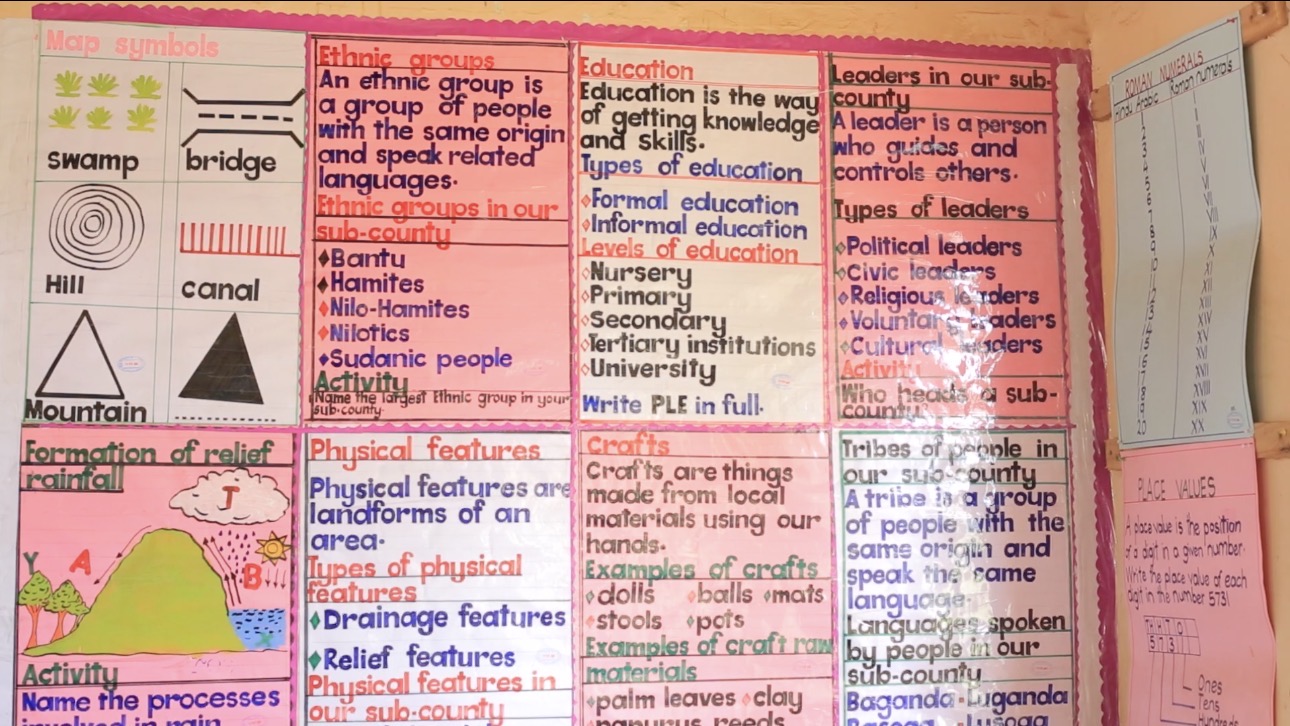 Map symbols
swamp
bridge
Hill
canal
Mountain
Ethnic groups
An ethnic group is
a group of people
with the same origin
and speak related
languages.
Ethnic groups in our
sub-county
Bantu
Hamites
Nilo-Hamites
Nilotics
Sudanic people
Activity
Name the largest Ethnic group in your
sub-county.
Education
Education is the way
of getting knowledge
and skills.
Types of education
Formal education
Informal education
Levels of education
Nursery
Primary
Secondary
Tertiary institutions
University
Write PLE in full.
Leaders in our sub-
county
A leader is a person
who guides and
controls others.
Types of leaders
Political leaders
Civic leaders
Religious leaders
Voluntary leaders
Cultural leaders
Activity
Who heads a sub-
county
Formation of relief
rainfall
J
Y
A
B
X
Activity
Name the processes
involved in rain
Physical features
Physical features are
landforms of an
area.
Types of physical
features
Drainage features
Relief features
Physical features in
our sub-county
Crafts
Crafts are things
made from local
materials using our
hands.
Examples of crafts
dolls balls mats
stools pots
Examples of craft raw
materials
palm leaves clay
papyrus reeds
Tribes of people in
our sub-county
A tribe is a group
of people with the
same origin and
speak the same
language.
Languages spoken
by people in our
sub-county
Baganda - Luganda
Basoga - Lusoga
ROMAN NUMERALS
Hindu Arabic Roman numerals
I
II
III
IV
V
VI
VII
VIII
IX
X
XI
XII
XIII
XIV
XV
XVI
XVII
XVIII
XIX
XX
PLACE VALUES
A place value is the position
of a digit in a given number.
Write the place value of each
digit in the number 5731
TH H T O
5 7 3 1
Ones
Tens
Hundreds